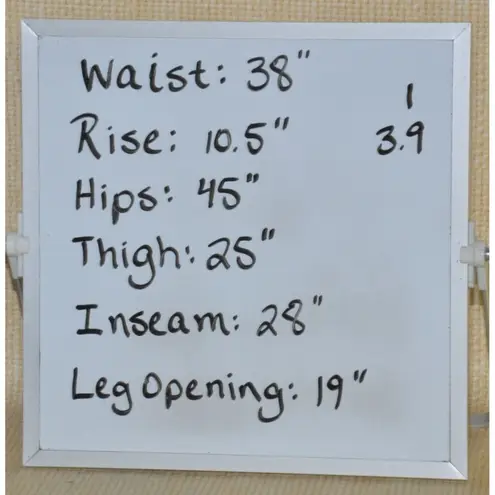 Waist: 38"
Rise: 10.5"
Hips: 45"
Thigh: 25"
Inseam: 28"
Leg Opening: 19"
1
3.9